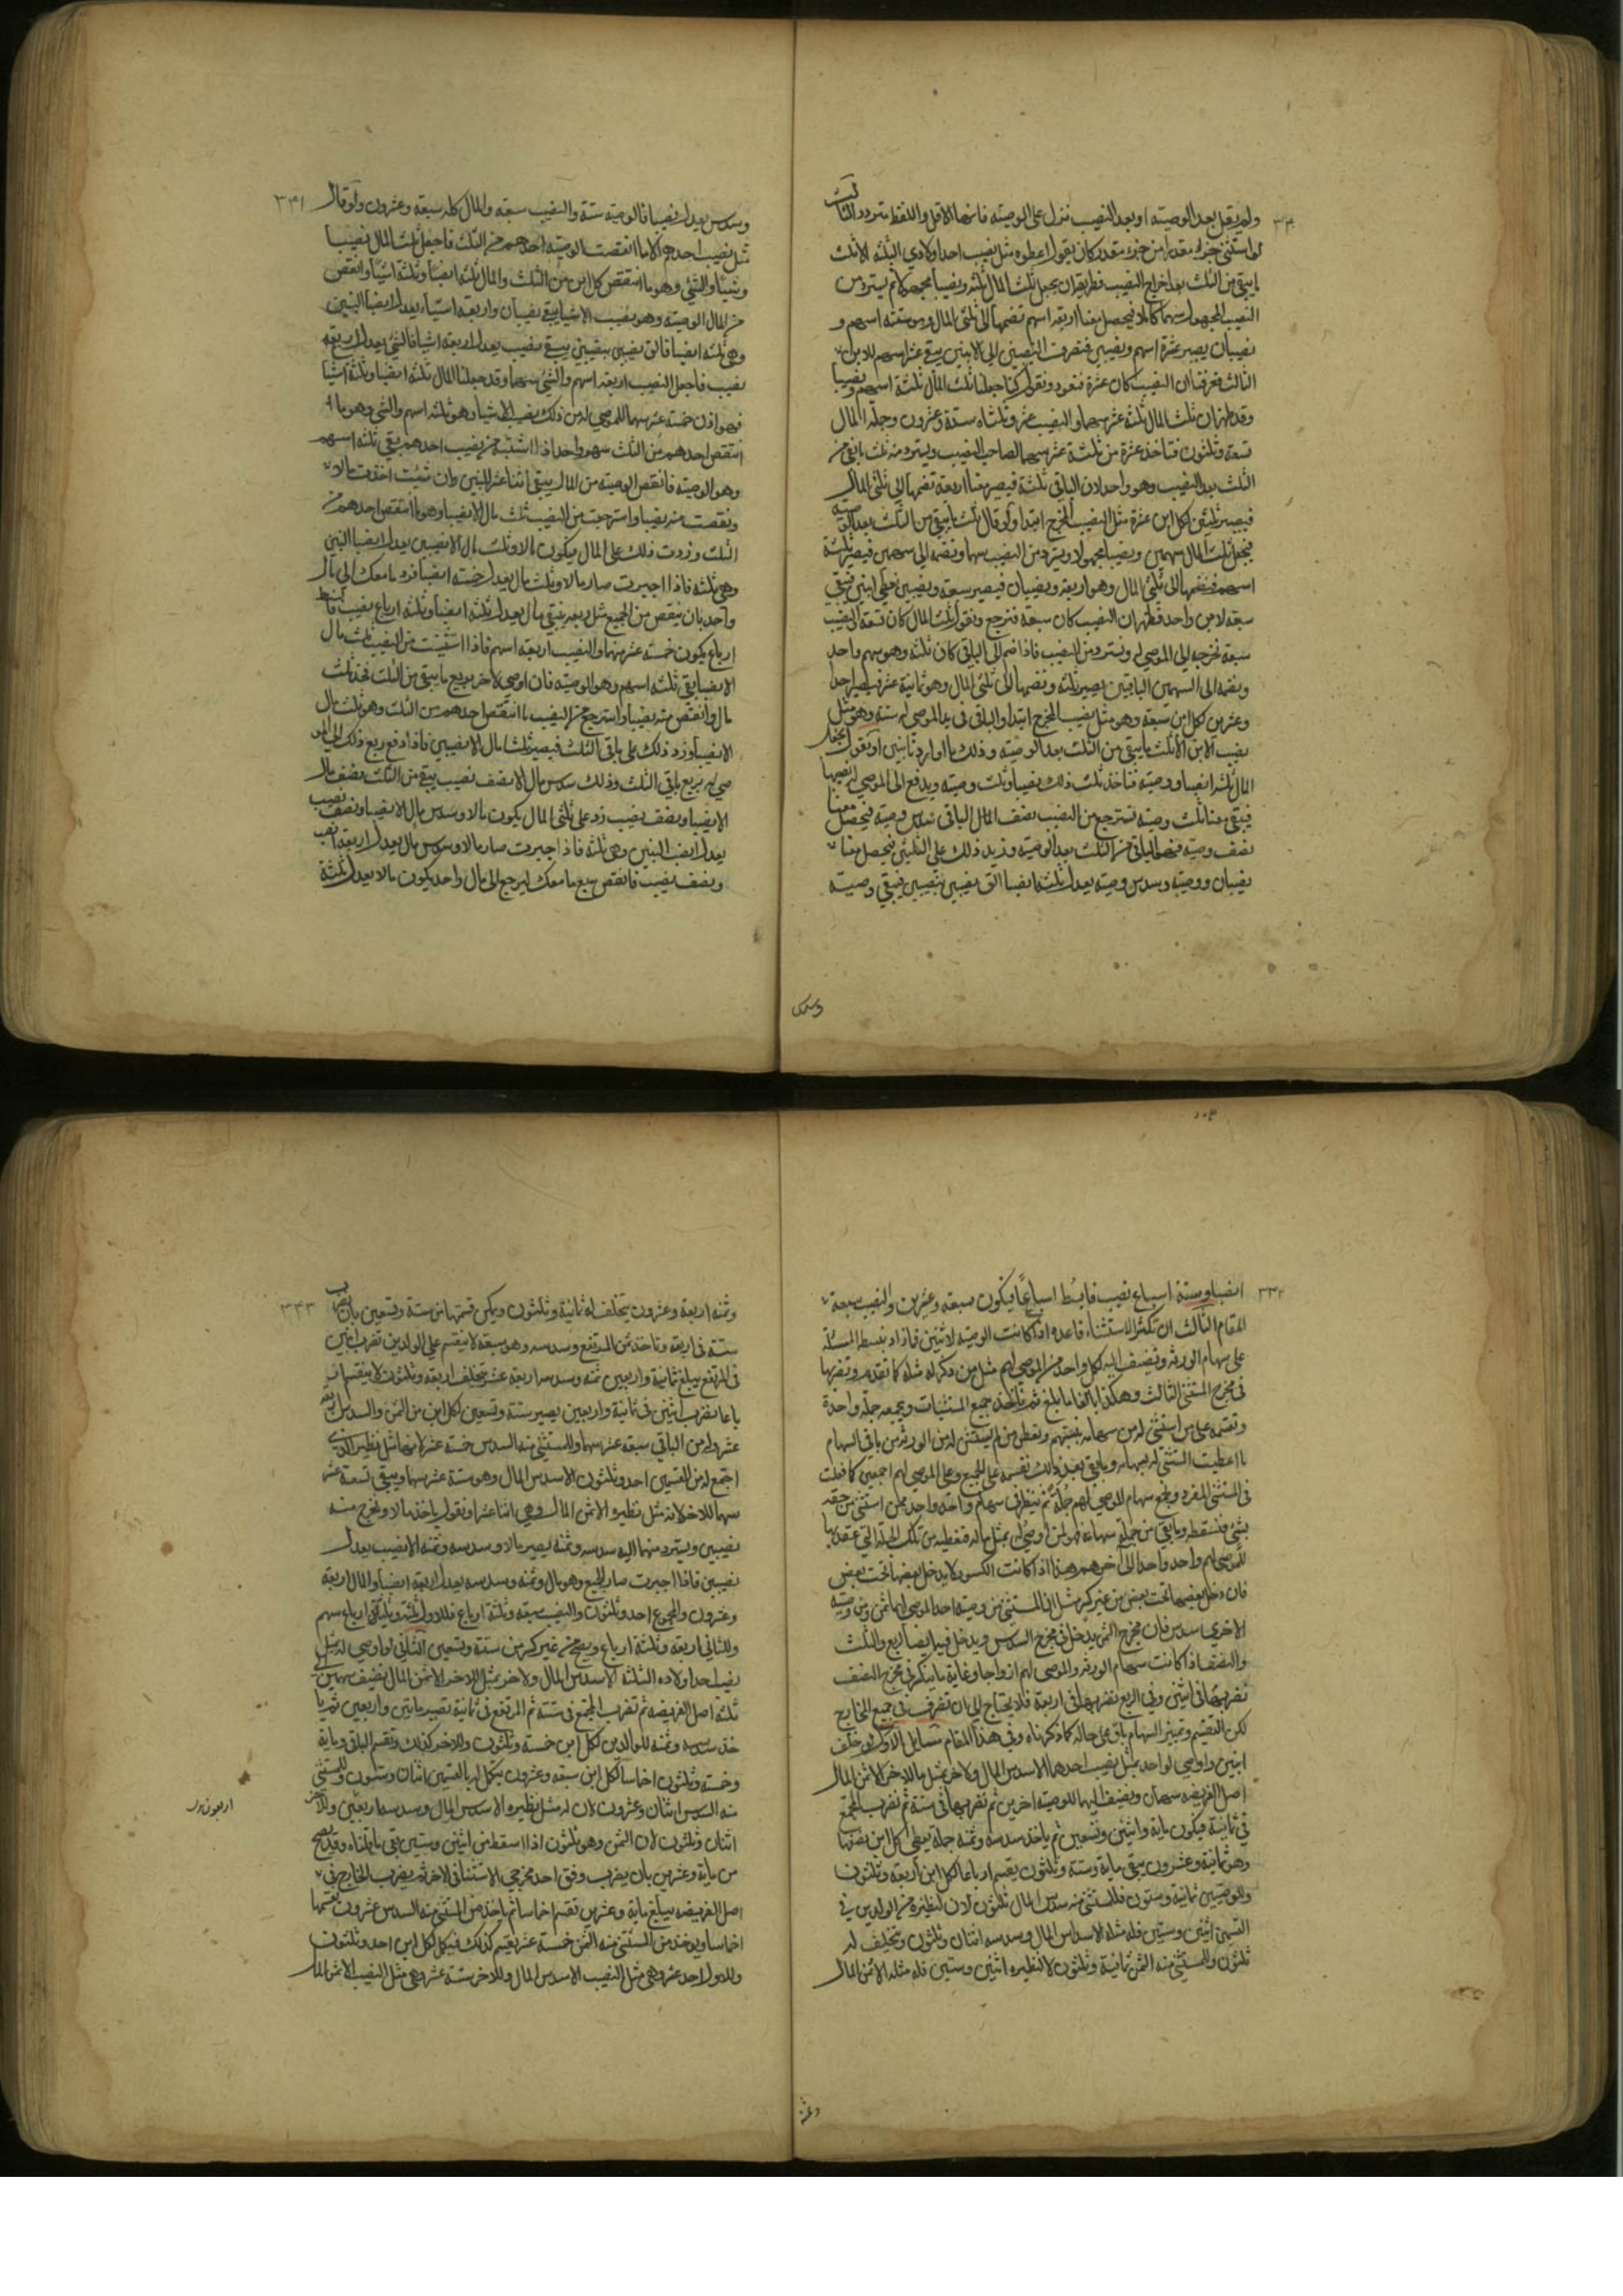 ٣٣٠
ولم يقل بعد الوصيته او بعد النصيب نزل على الوصيته فانها الاقل واللفظ متردد الثالث
لو استثنى جزءا مقدرا من جزء مقدر كان يقول اعطوه مثل نصيب احد اولادي الثلثة الا ثلث
ما يبقى من الثلث بعد اخراج النصيب فطريقه ان يجعل ثلث المال ثلثه ونصيبا مجهولا ثم يسترد من
النصيب المجهول سهما كاملا فيحصل معنا اربعه اسهم نضمها الى ثلثي المال وهو ستته اسهم و
نصيبان يصير عشرة اسهم ونصيبين فنصرف النصيبين الى الابنين يبقى عشرة اسهم للابن
الثالث فعرفنا ان النصيب كان عشرة فنعود ونقول كنا جعلنا ثلث المال ثلثة اسهم ونصيبا
وقد ظهر ان ثلث المال ثلثه عشر سهما والنصيب عشره وثلثاه ستة وعشرون وجملة المال
تسعة وثلثون فتاخذ عشرة من ثلثة عشر سهما لصاحب النصيب ويسترد منه ثلث ما بقي من
الثلث بعد النصيب وهو واحد لان الباقي ثلثة فيصير معنا اربعة نضمها الى ثلثي المال
فيصير ثلثين لكل ابن عشرة مثل النصيب المخرج ابتدا ولو قال ثلث ما يبقى من الثلث بعد الوصيه
فنجعل ثلث المال سهمين ونصيبا مجهولا ويسترد من النصيب سهما ونضمه الى سهمين فيصير ثلثة
اسهم فنضمها الى ثلثي المال وهو اربعه ونصيبان فيصير سبعه ونصيبين فيبقى
سبعه لابن واحد فظهر ان النصيب كان سبعة فنرجع ونقول ثلث المال كان تسعة النصيب
سبعة نخرجه الى الموصى له ويسترد من النصيب فاذا ضم الى الباقي كان ثلثه وهو سهم واحد
ونضمه الى السهمين الباقيين يصير ثلثه ونضمها الى ثلثي المال وهو ثمانية عشر فيصير احدا
وعشرين لكل ابن سبعه وهو مثل نصيب المخرج ابتدا والباقي في يد الموصى له ستة وهو مثل
نصيب الابن الا ثلث ما يبقى من الثلث بعد الوصيه وذلك ما اوردنا او نقول نجعل
المال ثلثه انصبا ووصيته فناخذ ثلث ذلك نصيبا وثلث وصيته ويدفع الى الموصى له نصيبها
فيبقى معنا ثلث وصيته نسترجع من النصيب نصف المال الباقي سدس وصيته فيحصل معنا
نصف وصيته فهو الباقي من الثلث بعد الوصيته ونزيد ذلك على الثلثين فيحصل معنا
نصيبان ووصيته وسدس وصيته يعدل ثلثه انصبا القى نصيبين بنصيبين فيبقى وصيته
وسدس
٣٣١
وسدس يعدل نصيبا فالوصيته ستة والنصيب سبعه والمال كله سبعة وعشرون ولو قال
مثل نصيب احدهم الا ما انتقصت الوصيته احدهم من الثلث فاجعل ثلث المال نصيبا
وشيئا والشئ وهو ما انتقص كل ابن من الثلث والمال ثلثه انصبا وثلثة اشيا وانقص
من المال الوصيته وهو نصيب الا شيا يبقى نصيبان واربعه اشيا يعدل انصبا البنين
وهي ثلثه انصبا فالق نصيبين بنصيبين يبقى نصيب يعدل اربعة اشيا فالشئ يعدل ربع
نصيب فاجعل النصيب اربعه اسهم والشئ سهما وقد جعلنا المال ثلثه انصبا وثلثة اشيا
فهو اذن خمسة عشر سهما للموصى له من ذلك نصيب الا شيا وهو ثلثه اسهم والشئ وهو ما
انتقص احدهم من الثلث سهم واحد اذا استثنيته من نصيب احدهم بقي ثلثه اسهم
وهو الوصيته فانقص الوصيته من المال يبقى اثنا عشر للبنين وان شئت اخذت مالا
ونقصت منه نصيبا واسترجعت من النصيب ثلث مال الا نصيبا وهو ما انتقص احدهم من
الثلث وزدت ذلك على المال فيكون مالا وثلث مال الا نصيبين يعدل انصبا البنين
وهي ثلثه فاذا اجبرت صار مالا وثلث مال يعدل خمسته انصبا فرد ما معك الى مال
واحد بان ينقص من الجميع مثل ربعه يبقى مال يعدل ثلثة انصبا وثلثة ارباع نصيب فابسط
ارباعا يكون خمسة عشر سهما والنصيب اربعة اسهم فاذا استثنيت من النصيب ثلث مال
الا نصيبا بقي ثلثه اسهم وهو الوصيته فان اوصى لاخر بربع ما يبقى من الثلث فخذ ثلث
مال وانقص منه نصيبا واسترجع من النصيب ما انتقص احدهم من الثلث وهو ثلث مال
الا نصيبا وزد ذلك على باقي الثلث فيصير ثلثا مال الا نصيبين فاذا دفع ربع ذلك الى المو
صى له بربع باقي الثلث وذلك سدس مال الا نصف نصيب يبقى من الثلث نصف مال
الا نصيبا ونصف نصيب زد على ثلثي المال يكون مالا وسدس مال الا نصيبا ونصف نصيب
يعدل انصبا البنين وهي ثلثه فاذا جبرت صار مالا وسدس مال يعدل اربعة انصبا
ونصف نصيب فانقص سبع ما معك ليرجع الى مال واحد يكون مالا يعدل ثلثة
٣٣٢
انصبا وستة اسباع نصيب فابسط اسباعا فيكون سبعه وعشرين والنصيب سبعة
المقام الثالث ان تكثر الاستثناء قاعدة اذا كانت الوصيته لاثنين فازاد بسط المسئلة
على سهام الورثه وتضيف اليه لكل واحد من الموصى لهم مثل من ذكر له مثله كما تقدم وتضربها
في مخرج المستثنى الثالث وهكذا بالغا ما بلغ ثم تاخذ جميع المستثنيات وتجمعه جملة واحدة
وتقسمه على من استثنى له من سهامه بنسبتهم وتعطي من لم يستثن له من الورثه من باقي السهام
ما اعطيت المستثنى له بسهامه وما بقي بعد ذلك تقسمه على الجميع وعلى الموصى لهم اجمعين كما فعلت
في المستثنى المفرد وتجمع سهام الموصى لهم جملة ثم ينظر في سهام واحد واحد ممن استثنى من حقه
بشئ فتسقطه وما بقي من جملة سهامه فهو لمن اوصى له بمثل ماله فتعطيه من تلك الجملة التي عقدتها
للموصى لهم واحد واحد الى اخرهم هذا اذا كانت الكسور لا يدخل بعضها تحت بعض
فان دخل بعضها تحت بعض من غير كسر مثل ان المستثنى من وصيته احد الموصى لهما ثمن ومن وصيته
الاخرى سدس فان مخرج الثمن يدخل في مخرج السدس ويدخل فيها ايضا الربع والثلث
والنصف اذا كانت سهام الورثه والموصى لهم ازواجا وغاية ما ينكسر في مخرج النصف
نضربها في اثنين وفي الربع نضربها في اربعة فلا يحتاج الى ان تضرب في جميع المخارج
لكن التقسيم وتمييز السهام باق على حاله كما ذكرناه وفي هذا المقام مسايل الاول لو خلف
ابنين واوصى لواحد بمثل نصيب احدهما الا سدس المال ولاخر بمثل ما للاخر الا ثمن المال
اصل الفريضه سهمان ونضيف اليهما للوصيه اخرين ثم نضربها في ستة ثم نضرب المجتمع
في ثمانية فيكون ماية واثنين وتسعين ثم ياخذ سدسه وثمنه جملة يعطى لكل ابن نصفها
وهو ثمانية وعشرون يبقى ماية وستة وثلثون يقسم ارباعا لكل ابن اربعة وثلثون
وللوصيين ثمانية وستون فللمستثنى منه سدس المال ثلثون لان لنظيره من الولدين في
القسمين اثنين وستين فله مثله الا سدس المال وسدسه اثنان وثلثون ويتخلف له
ثلثون وللمستثنى منه الثمن ثمانية وثلثون لان لنظيره اثنين وستين فله مثله الا ثمن المال
وثمنه
٣٣٣
وثمنه اربعة وعشرون يتخلف له ثمانية وثلثون ويمكن قسمتها من ستة وتسعين بان نضرب
ستة في اربعة وتاخذ ثمن المرتفع وسدسه وهو سبعه لا ينقسم على الولدين نضرب اثنين
في المرتفع يبلغ ثمانية واربعين ثمنه وسدسه اربعة عشر يتخلف اربعة وثلثون لا ينقسم ار
باعا نضرب اثنين في ثمانية واربعين يصير ستة وتسعين لكل ابن من الثمن والسدس اربعة
عشر وله من الباقي سبعة عشر سهما وللمستثنى منه السدس خمسة عشر لانها مثل نظيره الذي
اجتمع له من القسمين احد وثلثون الا سدس المال وهو ستة عشر سهما ويبقى تسعة عشر
سهما للاخر لانه مثل نظيره الا ثمن المال وهي اثنا عشر او نقول ياخذ مالا ونخرج منه
نصيبين ويسترد منهما اليه سدسه وثمنه يصير مالا وسدسه وثمنه الا نصيبين يعدل
نصيبين فاذا اجبرت صار الجميع وهو مال وثمنه وسدسه يعدل اربعة انصبا والمال اربعة
وعشرون والمجموع احد وثلثون والنصيب سبعه وثلثة ارباع فللاول ثلثه وثلثة ارباع سهم
وللثاني اربعة وثلثة ارباع ويصح من غير كسر من ستة وتسعين الثاني لو اوصى له بمثل
نصيب احد اولاده الثلثة الا سدس المال ولاخر بمثل الاخر الا ثمن المال نضيف سهمين الى
ثلثه اصل الفريضه ثم نضرب المجتمع في ستة ثم المرتفع في ثمانية تصير مايتين واربعين ثم يا
خذ سدسه وثمنه للوالدين لكل ابن خمسة وثلثون وللاخر كذلك وتقسم الباقي وماية
وخمسة وثلثون اخماسا لكل ابن سبعه وعشرون يكمل له بالقسمين اثنان وستون وللمستثنى
منه السدس اثنان وعشرون لان له مثل نظيره الا سدس المال وسدسه اربعون وللاخر
اثنان وثلثون لان الثمن وهو ثلثون اذا اسقط من اثنين وستين بقي ما قلناه وقد يصح
من ماية وعشرين بان يضرب وفق احد مخرجي الاستثنا في الاخر ثم يضرب الخارج في
اصل الفريضه يبلغ ماية وعشرين تقسم اخماسا ثم ياخذ من المستثنى منه السدس عشرون نقسمها
اخماسا ويوخذ من المستثنى منه الثمن خمسة عشر يقسم كذلك فيكمل لكل ابن احد وثلثون
وللاول احد عشر وهي مثل النصيب الا سدس المال وللاخر ستة عشر وهي مثل النصيب الا ثمن المال